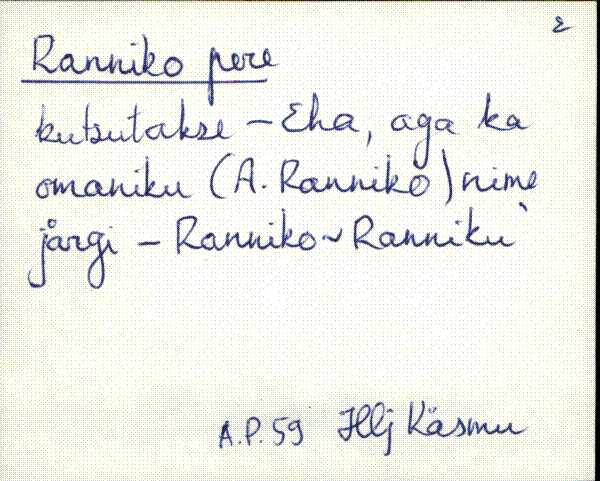 2
Ranniko pere
kutsutakse – Eha, aga ka
omaniku (A. Ranniko) nime
järgi – Ranniko ~ Ranniku`
A.P. 59 Hlj Käsmu